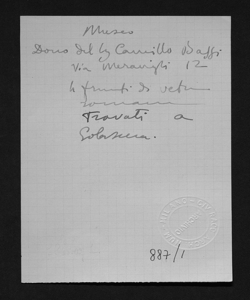 Museo
Dono del Sig Camillo Baffi
Via Meravigli 12
4 frammenti di vetro
romani
Trovati a
Golasecca.
887/1